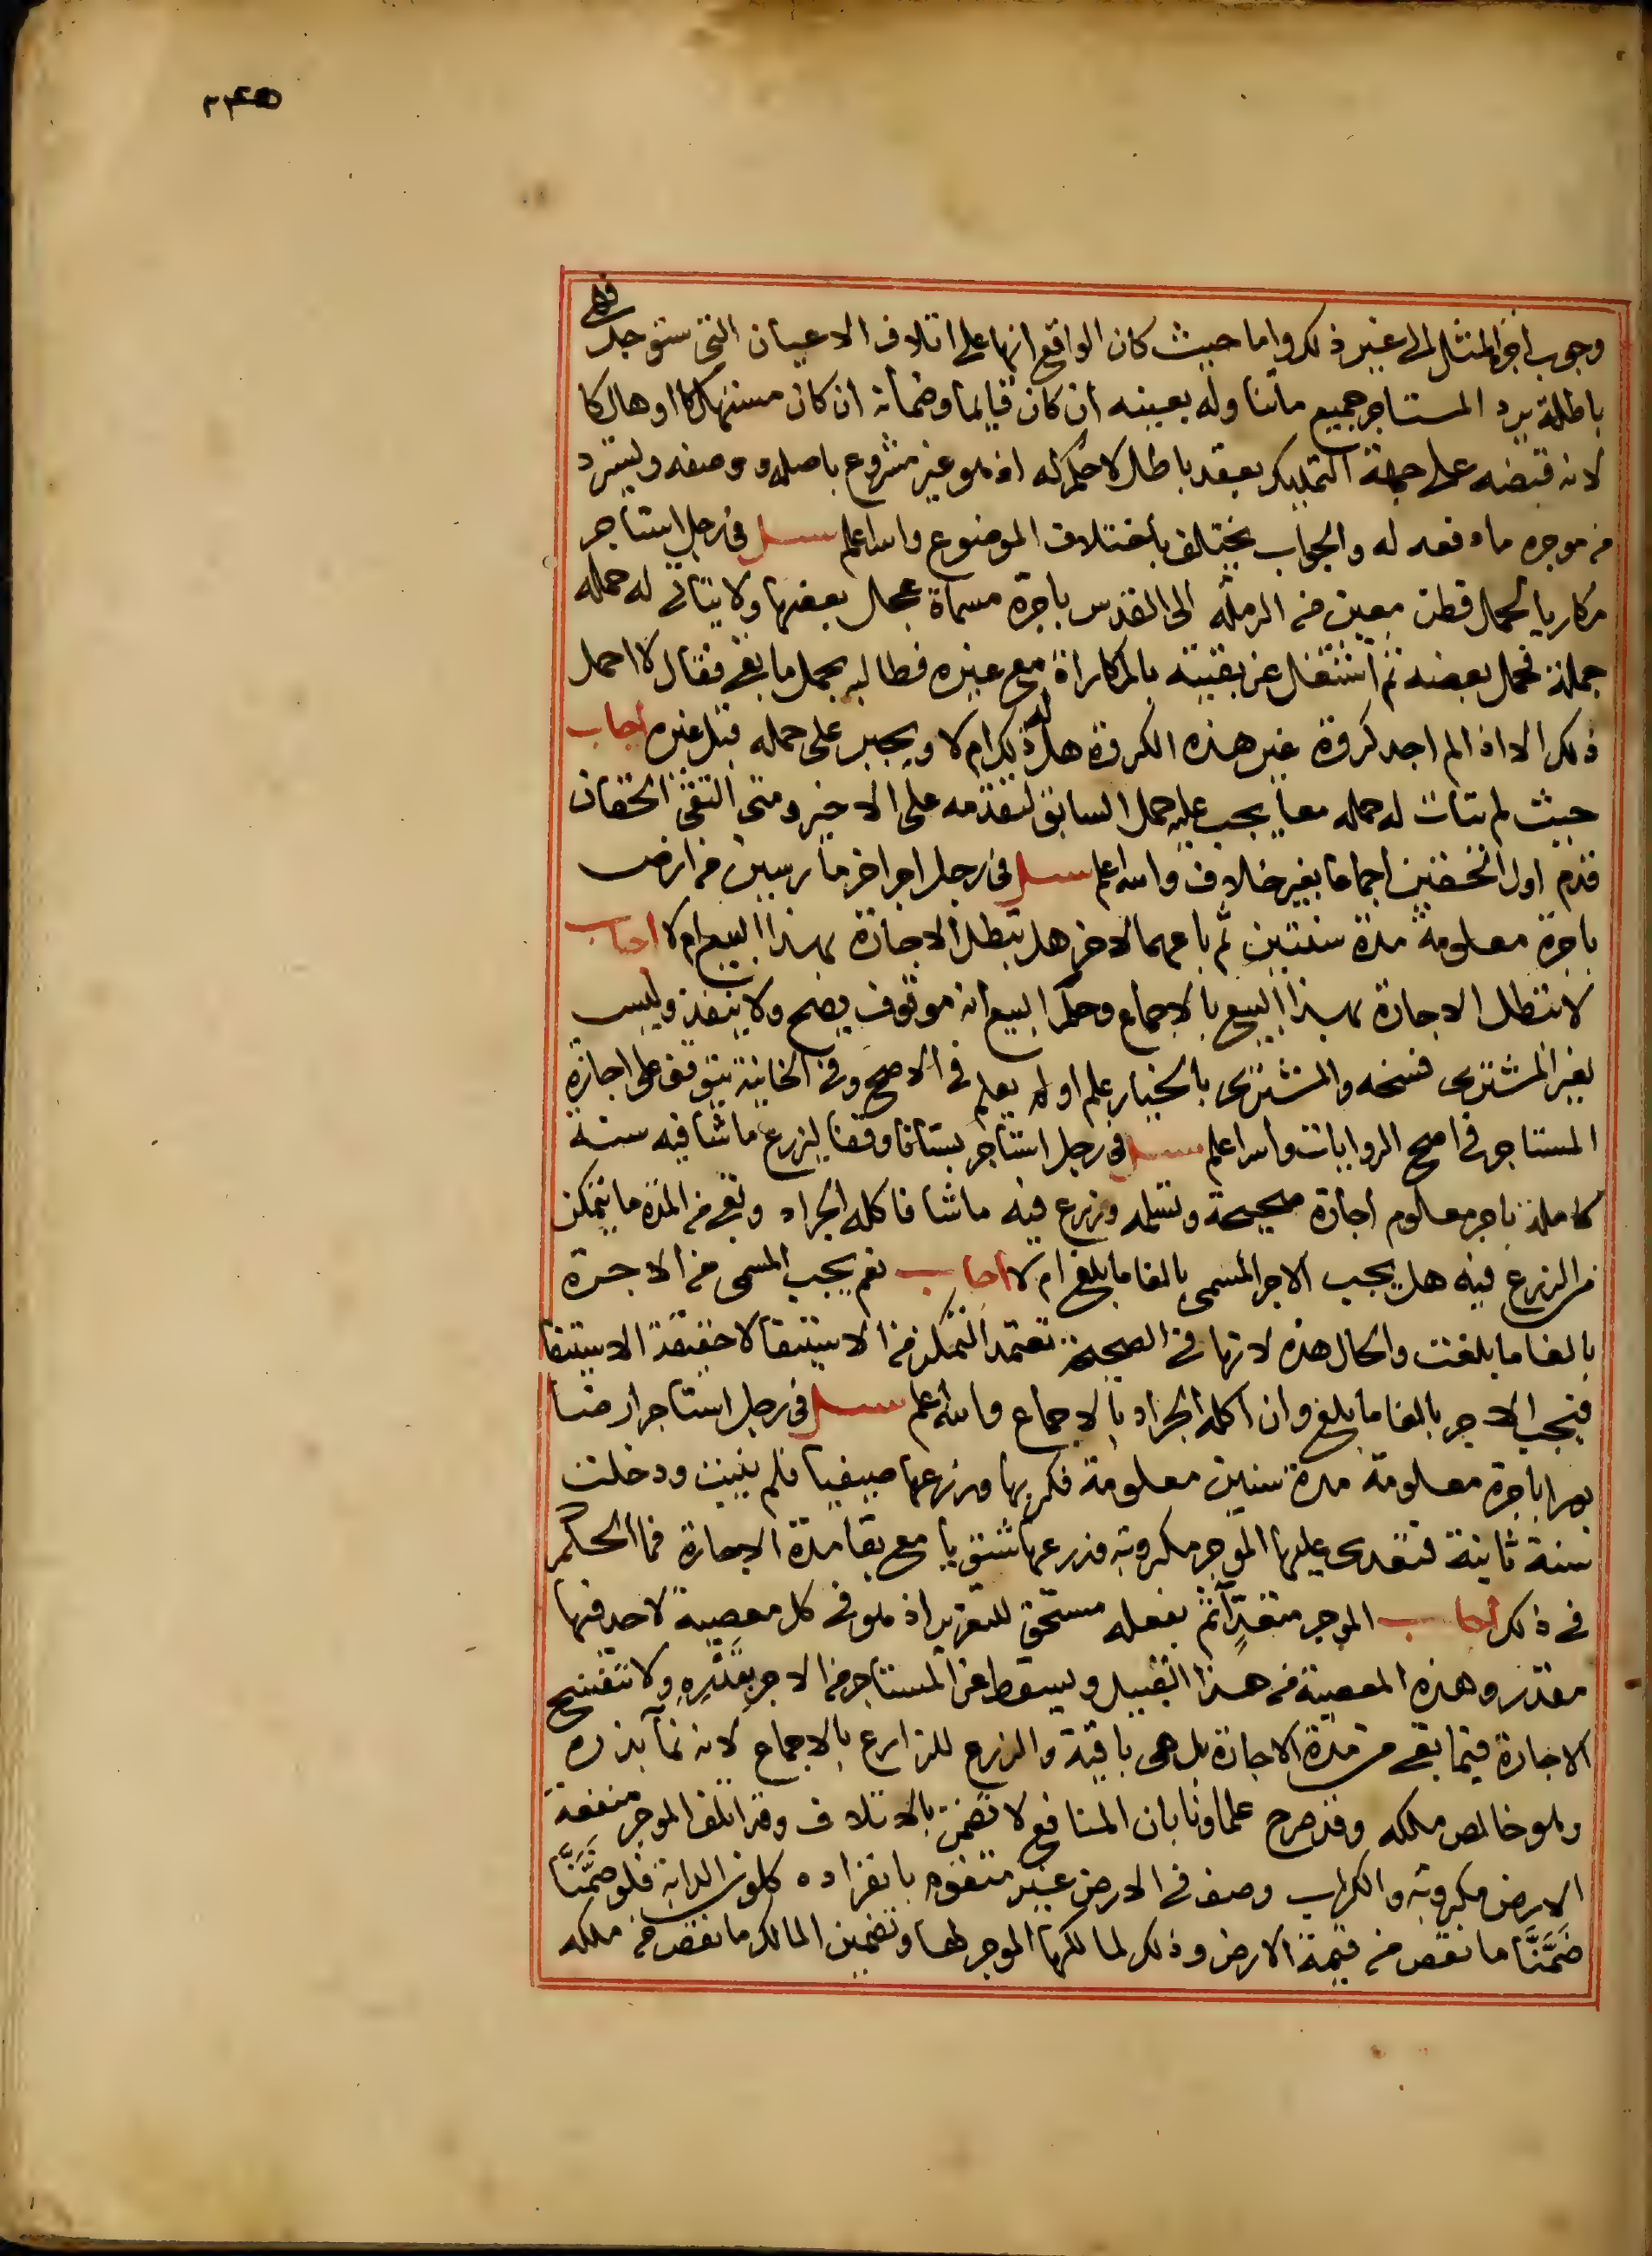 ٢٤٥
وجوب اجر المثل الى غير ذلك واما حيث كان الواقع انها على اتلاف الاعيان التى ستوجد فهى
باطلة يرد المستاجر جميع ما تناوله بعينه ان كان قايما وضمانه ان كان مستهلكا او هالكا
لانه قبضه على جهة التمليك بعقد باطل لا حكم له اذ هو غير مشروع باصله ووصفه ويسترد
من موجره ما دفعه له والجواب يختلف باختلاف الموضوع والله اعلم سيل فى رجل استاجر
مكاريا لحمل قطن معين من الرملة الى القدس باجرة مسماة عجل بعضها ولا يتاتى له حمله
جملة فحمل بعضه ثم اشتغل عن بقيته بالمكاراة مع غيره فطالبه بحمل ما بقى فقال لا احمل
ذلك الا اذا لم اجد كروة غير هذه الكروة هل له ذلك ام لا ويجبر على حمله قبل غيره اجاب
حيث لم يتات له حمله معا يجب عليه حمل السابق لتقدمه على الاخير ومتى التقى الحقان
قدم اول الحقين اجماعا بغير خلاف والله اعلم سيل فى رجل اجر اخر مارسين من ارض
باجرة معلومة مدة سنتين ثم باعهما لاخر هل تبطل الاجارة بهذا البيع ام لا اجاب
لا تبطل الاجارة بهذا البيع بالاجماع وحكم البيع انه موقوف يصح ولا ينفذ وليس
لغير المشترى فسخه والمشترى بالخيار علم او لم يعلم فى الاصح وفى الخانية يتوقف على اجازة
المستاجر فى اصح الروايات والله اعلم سيل فى رجل استاجر بستانا وقفا ليزرع ما شا فيه سنة
كاملة باجر معلوم اجارة صحيحة وتسلمه وزرع فيه ما شا فاكله الجراد وبقى من المدة ما يتمكن
من الزرع فيه هل يجب الاجر المسمى بالغا ما بلغ ام لا اجاب نعم يجب المسمى من الاجرة
بالغا ما بلغت والحال هذه لانها فى الصحيحة تعتمد التمكن من الاستيفا لا حقيقة الاستيفا
فيجب الاجر بالغا ما بلغ وان اكله الجراد بالاجماع والله اعلم سيل فى رجل استاجر ارضا
بورا باجرة معلومة مدة سنين معلومة فكربها وزرعها صيفيا فلم ينبت ودخلت
سنة ثانية فتعدى عليها الموجر مكروبة وزرعها شتويا مع بقا مدة الاجارة فما الحكم
فى ذلك اجاب الموجر متعد آثم بفعله مستحق للتعزير اذ هو فى كل معصية لا حد فيها
مقدر وهذه المعصية من هذا القبيل ويسقط عن المستاجر من الاجر بقدره ولا تنفسخ
الاجارة فيما بقى من مدة الاجارة بل هى باقية والزرع للزارع بالاجماع لانه نمآ بذره
وهو خالص ملكه وقد صرح علماونا بان المنافع لا تضمن بالاتلاف وقد اتلف الموجر منفعة
الارض مكروبة والكراب وصف فى الارض غير متقوم بانفراده كلون الدابة فلو ضمَّنَّا
ضمَّنَّا ما نقص من قيمة الارض وذلك لمالكها الموجر لها وتضمين المالك ما نقص من ملكه